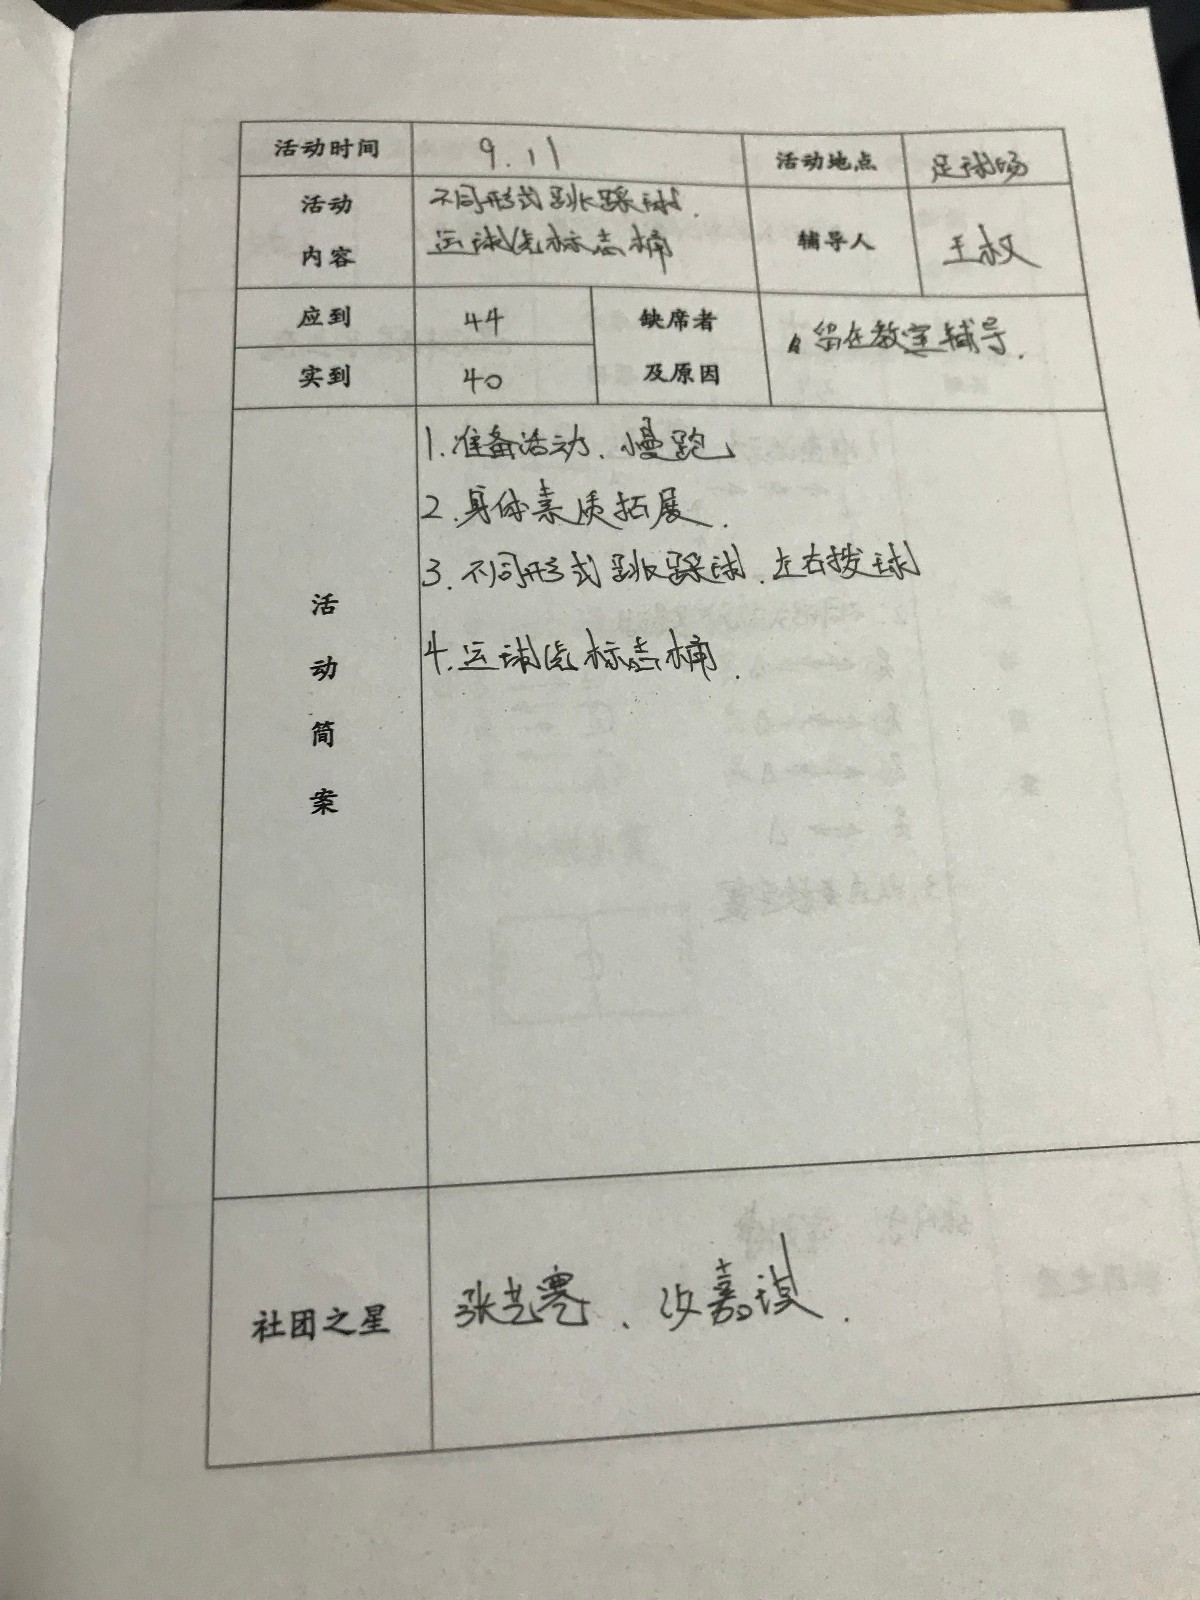 活动时间 9.11 活动地点 足球场
活动 不同形式跳踩球.
内容 运球绕标志桶 辅导人 王权
应到 44 缺席者
实到 40 及原因 留在教室辅导.
1.准备活动、慢跑
2.身体素质拓展.
3.不同形式跳踩球、左右拨球
4.运球绕标志桶.
活
动
简
案
社团之星 张艺骞、汝嘉祺.